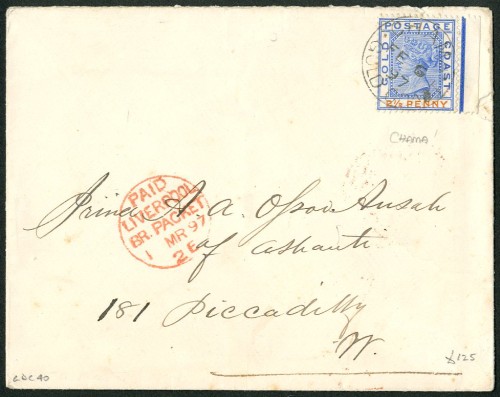 POSTAGE
GOLD COAST
2½ PENNY
FE 6
97
CHAMA
PAID
LIVERPOOL
BR. PACKET
1 MR 97
2 E
Prince A. A. Osoo Ansah
of Ashanti
181 Piccadilly
W.
£125